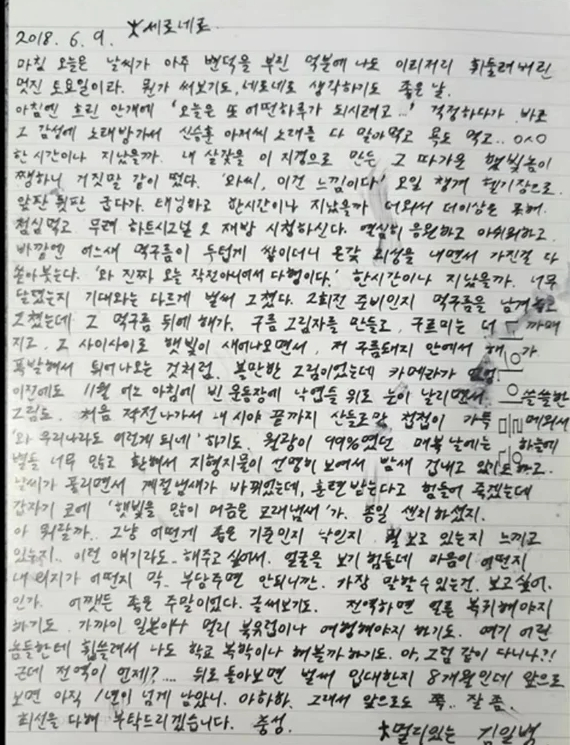 2018. 6. 9. ★세로네로
마침 오늘은 날씨가 아주 변덕을 부린 덕분에 나도 이리저리 휘둘려버린
멋진 토요일이라. 뭔가 써보기도, 네로네로 생각하기도 좋은 날.
아침엔 흐린 안개에 '오늘은 또 어떤하루가 되시려고...' 걱정하다가 바로
그 감성에 노래방가서 신승훈 아저씨 노래를 다 말아먹고 욕도 먹고.. ㅇㅅㅇ
한시간이나 지났을까. 내 살갗을 이 지경으로 만든 그 따가운 햇빛놈이
쨍하니 거짓말 같이 떴다. '와씨, 이건 느낌이다!' 오일 챙겨 헬기장으로.
앞판 뒷판 굽다가. 태닝하고 한시간이나 지났을까 더워서 더이상은 못해.
점심먹고 무려 하트시그널 2 재방 시청하신다. 열심히 응원하고 아쉬워하고.
바깥엔 어느새 먹구름이 두텁게 쌓이더니 온갖 괴성을 내면서 가진걸 다
쏟아붓는다. '와 진짜 오늘 작전아니어서 다행이다.' 한시간이나 지났을까. 너무
달렸는지 기대와는 다르게 벌써 그쳤다. 2회전 준비인지 먹구름을 남겨놓고
그쳤는데 그 먹구름 뒤에 해가. 구름 그림자를 만들고, 구르미는 더 까매
지고, 그 사이사이로 햇빛이 새어나오면서, 저 구름돼지 안에서 해가
폭발해서 튀어나오는 것처럼. 볼만한 그림이었는데 카메라가 없었
이전에도 11월 어느 아침에 빈 운동장에 낙엽들 위로 눈이 날리면서 쓸쓸한
그림도, 처음 작전나가서 내 시야 끝까지 산들로만 첩첩이 가득 메워서
'와 우리나라도 이렇게 되네' 하기도. 월광이 99%였던 매복날에는 하늘에
별들 너무 많고 환해서 지형지물이 선명히 보여서 밤새 겁내고 있기도하고.
날씨가 풀리면서 계절냄새가 바뀌었는데, 훈련받는다고 힘들어 죽겠는데
갑자기 코에 '햇빛을 많이 머금은 모래냄새'가. 종일 센치하셨지.
아 뭐랄까.. 그냥 어떻게 좋은 기준인지 낙인지 뭘 보고 있는지 느끼고
있는지.. 이런 얘기라도.. 해주고 싶어서. 얼굴을 보기 힘든데 마음이 어떤지
내 의지가 어떤지 막.. 부담주면 안되니깐. 가장 말할수있는건, 보고싶어.
인가. 어쨌든 좋은 주말이었다. 글써보기도. 전역하면 얼른 복귀해야지
하기도. 가까이 일본이나 멀리 북유럽이나 여행해야지 하기도. 여기 어린
놈들한테 휩쓸려서 나도 학교 복학이나 해볼까하기도. 아, 그럼 같이 다니나?!
근데 전역이 언제?.... 뒤로 돌아보면 벌써 입대한지 8개월인데 앞으로
보면 아직 1년이 넘게 남았니. 아하하. 그래서 앞으로도 쭉.. 잘 좀.
최선을 다해 부탁드리겠습니다. 충성.
★멀리있는 김일백